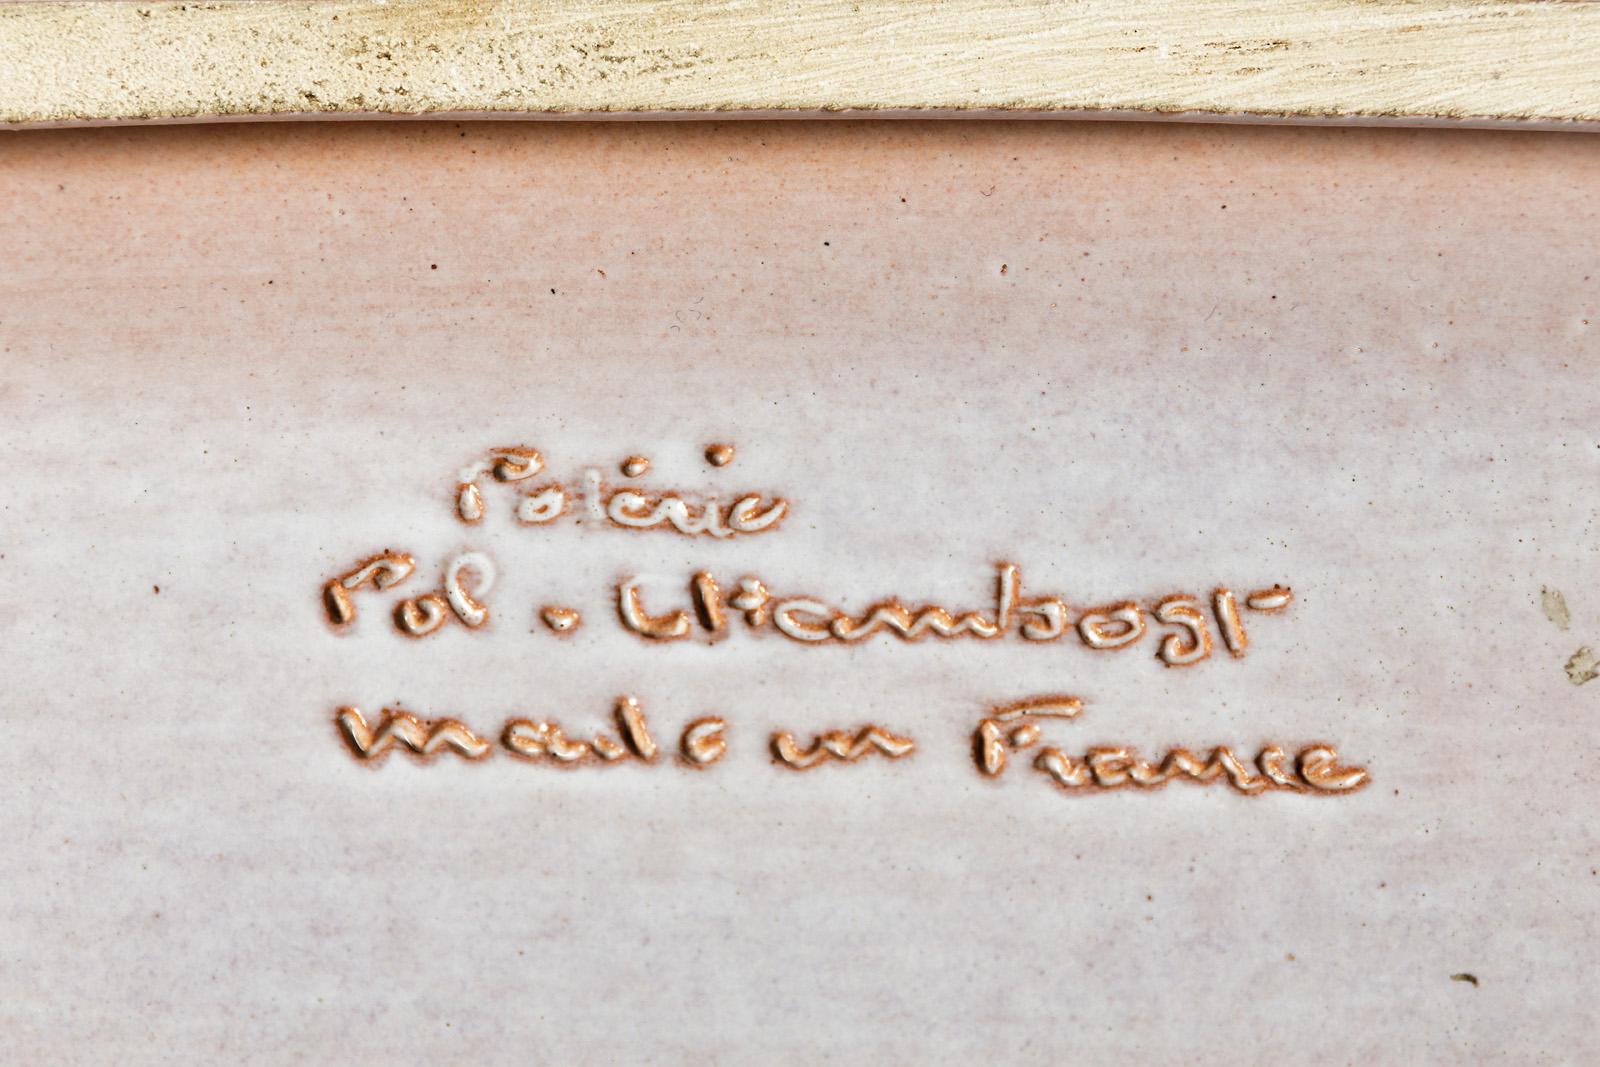 Poterie
Pol . Chambost -
made in France